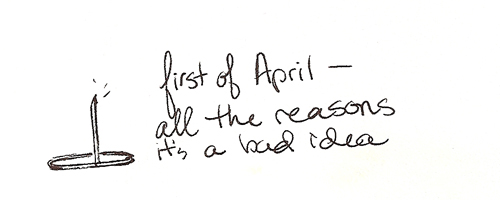 first of April —
all the reasons
it's a bad idea